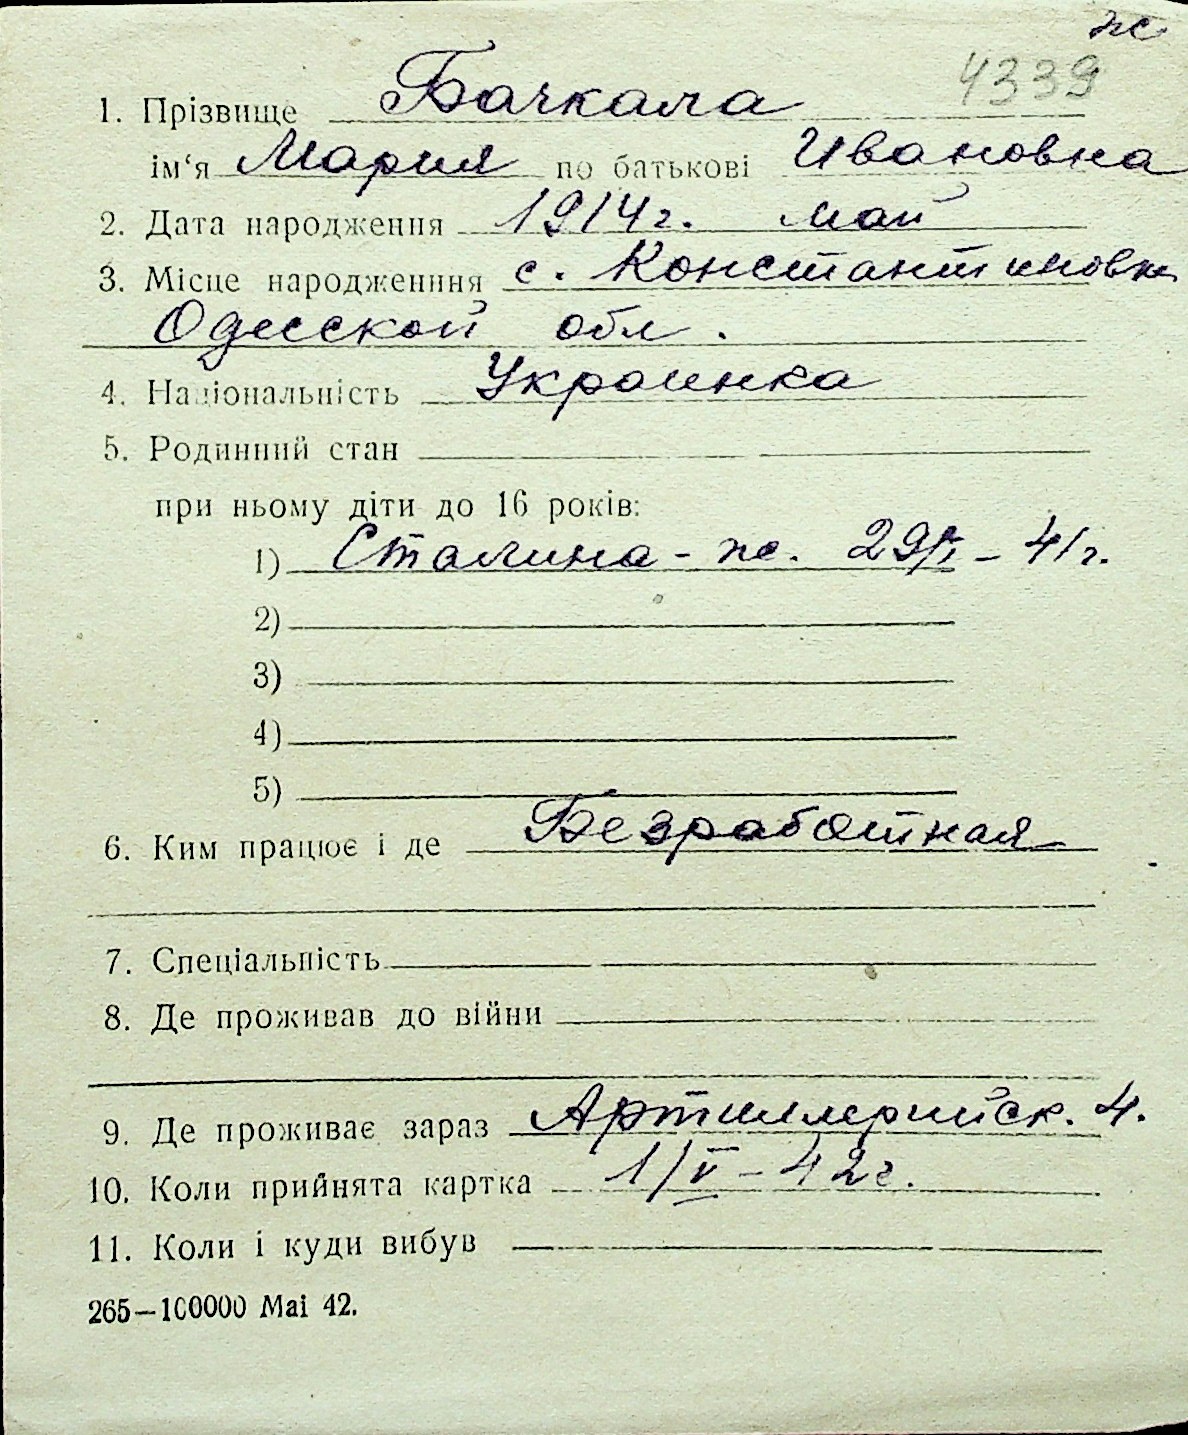 ж
4339
1. Прізвище Бачкала
ім'я Мария по батькові Ивановна
2. Дата народження 1914 г. май
3. Місце народженння с. Константиновка
Одесской обл.
4. Національність Украинка
5. Родинний стан
при ньому діти до 16 років:
1) Сталина - ж. 29/I - 41 г.
2)
3)
4)
5)
6. Ким працює і де Безработная
7. Спеціальність
8. Де проживав до війни
9. Де проживає зараз Артиллерийск. 4.
10. Коли прийнята картка 1/V - 42 г.
11. Коли і куди вибув
265—100000 Mai 42.